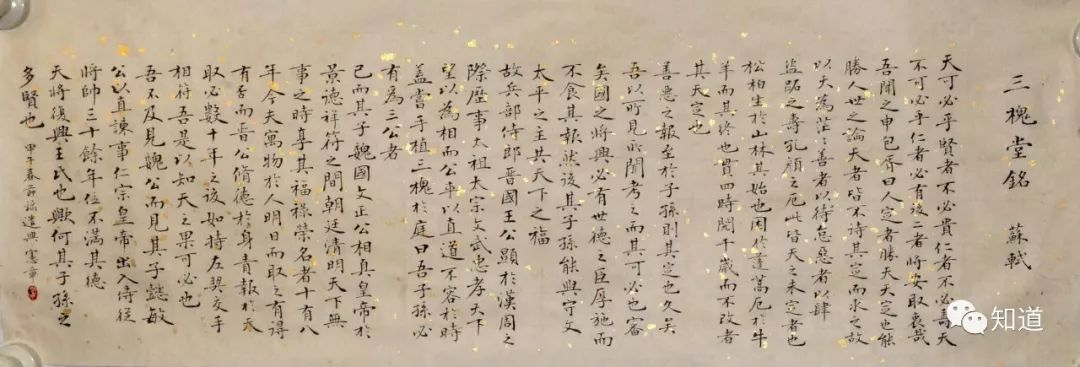 三槐堂銘　蘇軾
天可必乎賢者不必貴仁者不必壽天
不可必乎仁者必有後二者將安取衷哉
吾聞之申包胥曰人定者勝天天定也能
勝人世之論天者皆不待其定而求之故
以天為茫茫善者以待怠惡者以肆
盜跖之壽孔顏之厄此皆天之未定者也
松柏生於山林其始也困於蓬蒿厄於牛
羊而其終也貫四時閱千歲而不改者
其天定也
善惡之報至於子孫則其定也久矣
吾以所見所聞考之而其可必也審
矣國之將興必有世德之臣厚施而
不食其報然後其子孫能與守文
太平之主共天下之福
故兵部侍郎晉國王公顯於漢周之
際歷事太祖太宗文武忠孝天下
望以為相而公卒以直道不容於時
蓋嘗手植三槐於庭曰吾子孫必
有為三公者
已而其子魏國文正公相真皇帝於
景德祥符之間朝廷清明天下無
事之時享其福祿榮名者十有八
年今夫寓物於人明日而取之有得
有否而晉公脩德於身責報於天
取必數十年之後如持左契交手
相符吾是以知天之果可必也
吾不及見魏公而見其子懿敏
公以直諫事仁宗皇帝出入侍從
將帥三十餘年位不滿其德
天將復興王氏也歟何其子孫之
多賢也　甲午春　遣興　憲章
知道